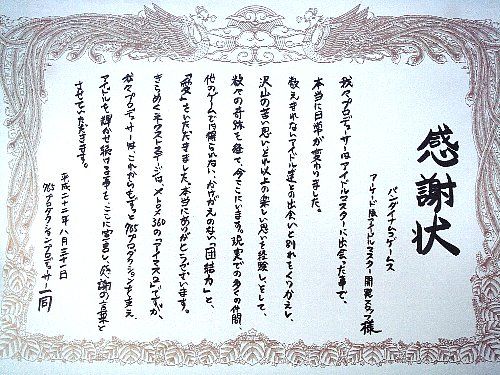 感謝状
バンダイナムコゲームス
アーケード版アイドルマスター開発スタッフ様
我々プロデューサーはアイドルマスターに出会った事で、
本当に日常が変わりました。
数えきれないアイドル達との出会いと別れをくりかえし、
沢山の苦い思いとそれ以上の楽しい思いを経験し、そして、
数々の奇跡を経て、今ここにいます。現実での多くの仲間、
他のゲームでは得られない、かけがえのない「団結力」と、
「愛」をいただきました。本当にありがとうございます。
きらめくネクストステージは、メトメX360の「アイマス2」ですが、
我々プロデューサーは、これからもずっと765プロダクションを支え、
アイドルを輝かせ続ける事を、ここに宣言し、感謝の言葉と
させていただきます。
平成二十二年八月三十一日
765プロダクションプロデューサー一同